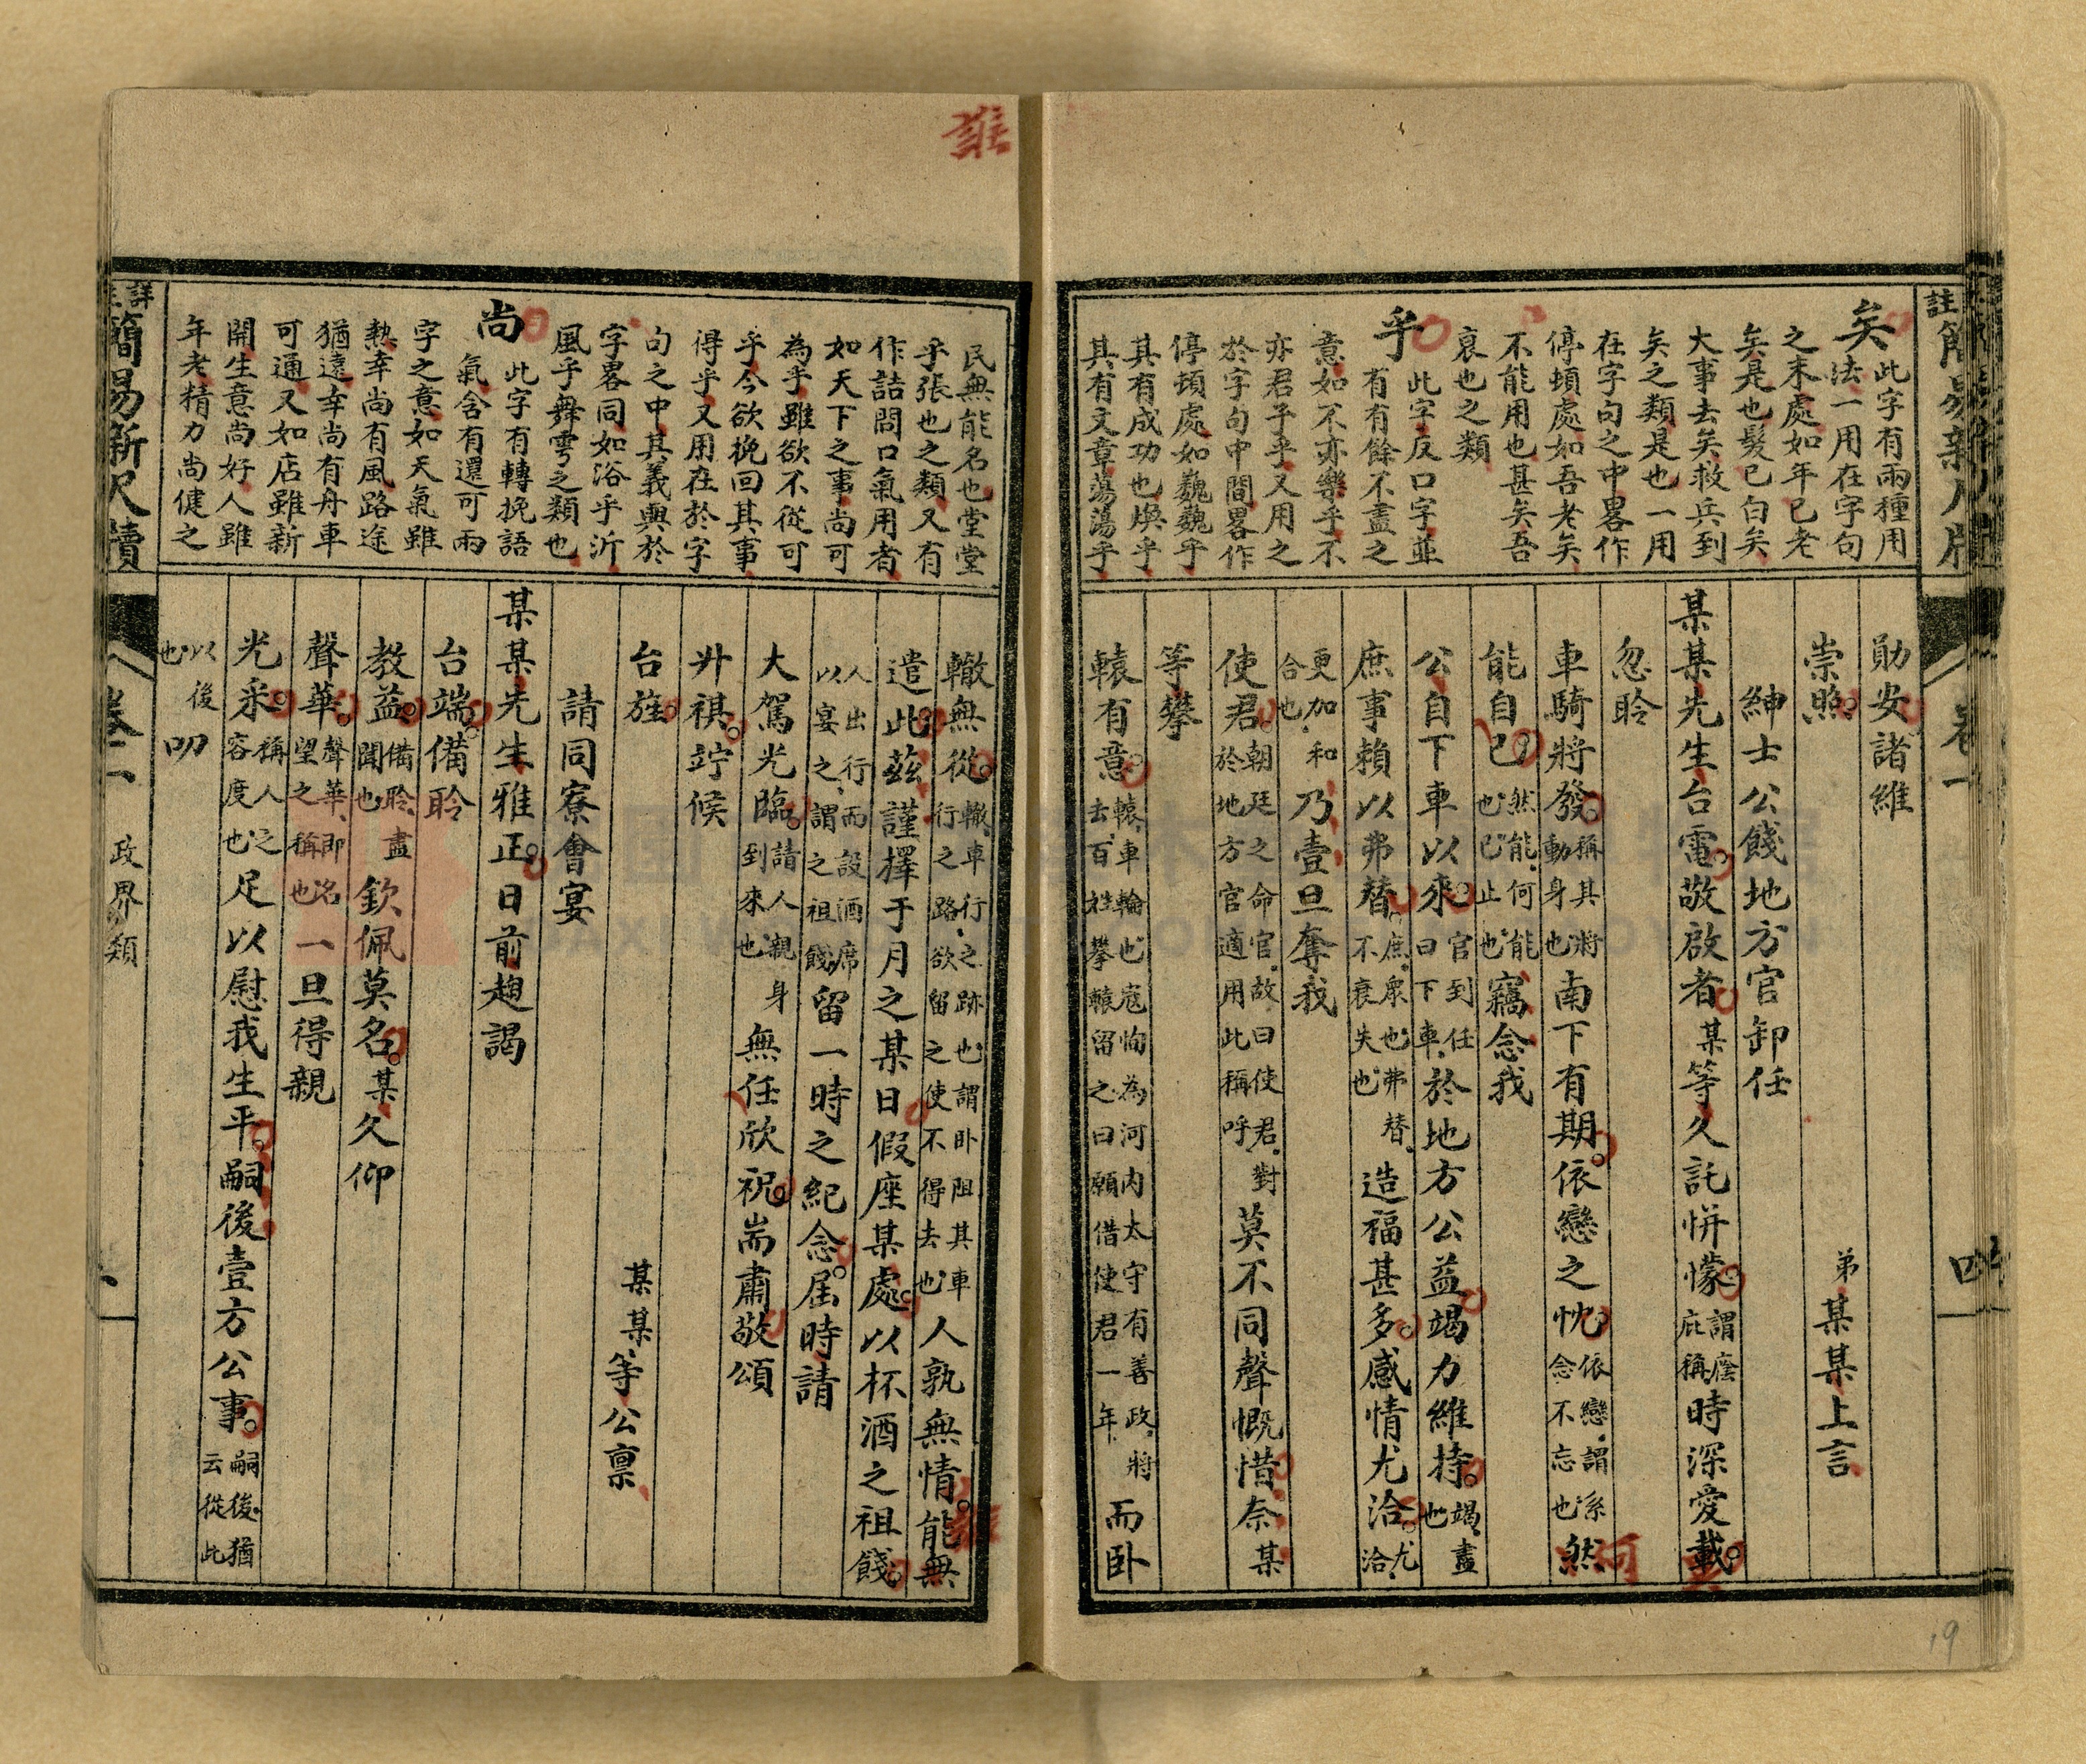 註簡易新尺牘
卷一
四
矣
此字有兩種用
法一用在字句
之末處如年已老
矣是也髮已白矣
大事去矣救兵到
矣之類是也一用
在字句之中畧作
停頓處如吾老矣
不能用也甚矣吾
衰也之類
乎
此字反口字並
有有餘不盡之
意如不亦樂乎不
亦君子乎又用之
於字句中間畧作
停頓處如巍巍乎
其有成功也煥乎
其有文章蕩蕩乎
勛安諸維
崇照 弟某某上言
紳士公餞地方官卸任
某某先生台電敬啟者某等久託帡幪謂廕庇稱時深愛戴
忽聆
車騎將發稱其將動身也南下有期依戀之忱依戀謂系念不忘也然
能自已然能何能也已止也竊念我
公自下車以來官到任曰下車於地方公益竭力維持竭盡也
庶事賴以弗替庶眾也弗替不衰失也造福甚多感情尤洽尤洽
更加和合也乃壹旦奪我
使君朝廷之命官故曰使君對於地方官適用此稱呼莫不同聲慨惜奈某
等攀
轅有意轅車輪也寇恂為河內太守有善政將去百姓攀轅留之曰願借使君一年而卧
民無能名也堂堂
乎張也之類又有
作詰問口氣用者
如天下之事尚可
為乎雖欲不從可
乎今欲挽回其事
得乎又用在於字
句之中其義與於
字畧同如浴乎沂
風乎舞雩之類也
尚
此字有轉挽語
氣含有還可兩
字之意如天氣雖
熱幸尚有風路途
猶遠幸尚有舟車
可通又如店雖新
開生意尚好人雖
年老精力尚健之
轍無從轍車行之跡也謂卧阻其車行之路欲留之使不得去也人孰無情能無
遣此茲謹擇于月之某日假座某處以杯酒之祖餞
人出行而設酒席以宴之謂之祖餞留一時之紀念屆時請
大駕光臨請人親身到來也無任欣祝耑肅敬頌
升祺竚候
台旌 某某等公稟
請同寮會宴
某某先生雅正日前趨謁
台端備聆
教益備聆盡聞也欽佩莫名某久仰
聲華聲華即名望之稱也一旦得親
光釆稱人之容度也足以慰我生平嗣後壹方公事嗣後猶云從此
以後也叨
詳註簡易新尺牘
卷一
政界類
誰
19